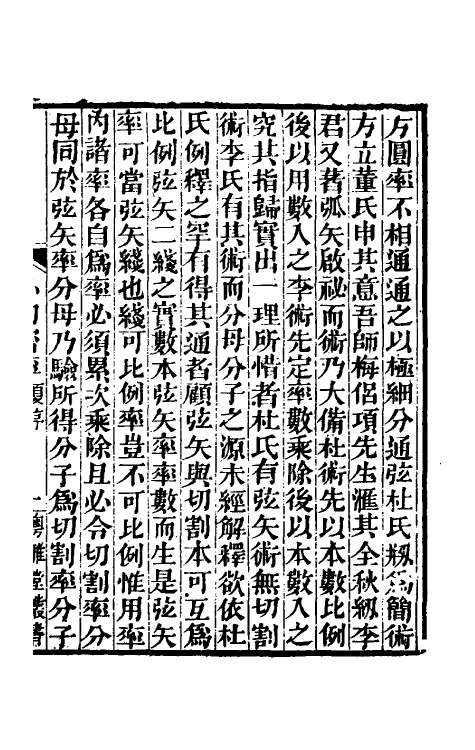 方圓率不相通通之以極細分通弦杜氏剏為簡術
方立董氏申其意吾師梅侶項先生滙其全秋紉李
君又著弧矢啟祕而術乃大備杜術先以本數比例
後以用數入之李術先定率數乘除後以本數入之
究其指歸實出一理所惜者杜氏有弦矢術無切割
術李氏有其術而分母分子之源未經解釋欲依杜
氏例釋之罕有得其通者顧弦矢與切割本可互為
比例弦矢二綫之實數本弦矢率率數而生是弦矢
率可當弦矢綫也綫可比例率豈不可比例惟用率
內諸率各自為率必須累次乘除且必令切割率分
母同於弦矢率分母乃驗所得分子為切割率分子
序 一 粵雅堂叢書